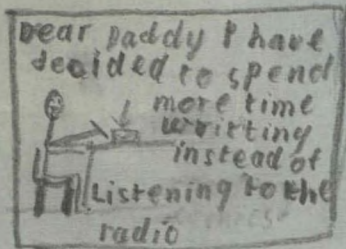 Dear Daddy I have
decided to spend
more time
writting
instead of
Listening to the
radio